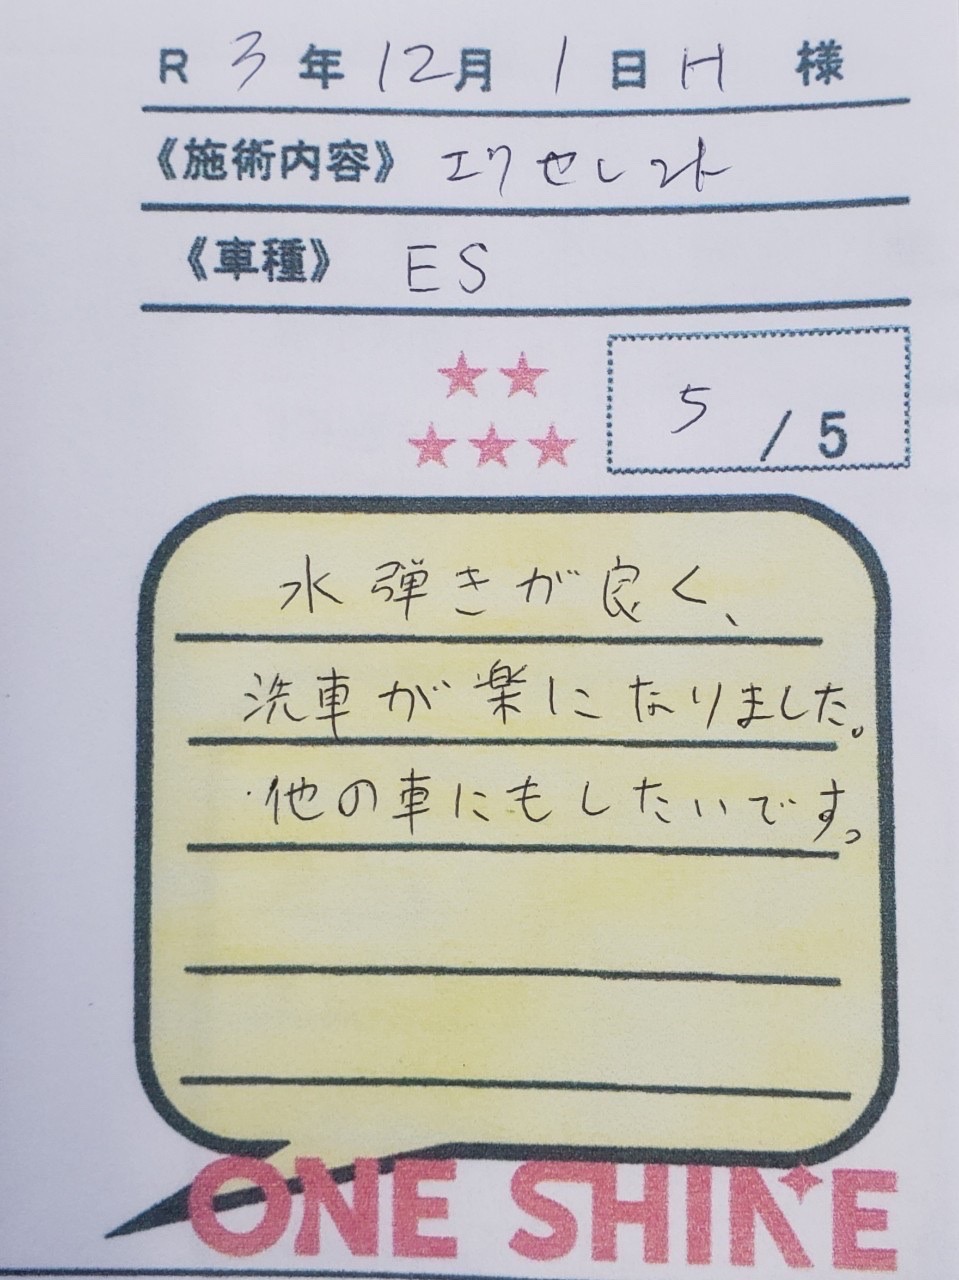 R 3年 12月 1日 H 様
《施術内容》 エクセレント
《車種》 ES
★★
★★★
5 / 5
水弾きが良く、
洗車が楽になりました。
他の車にもしたいです。
ONE SHINE